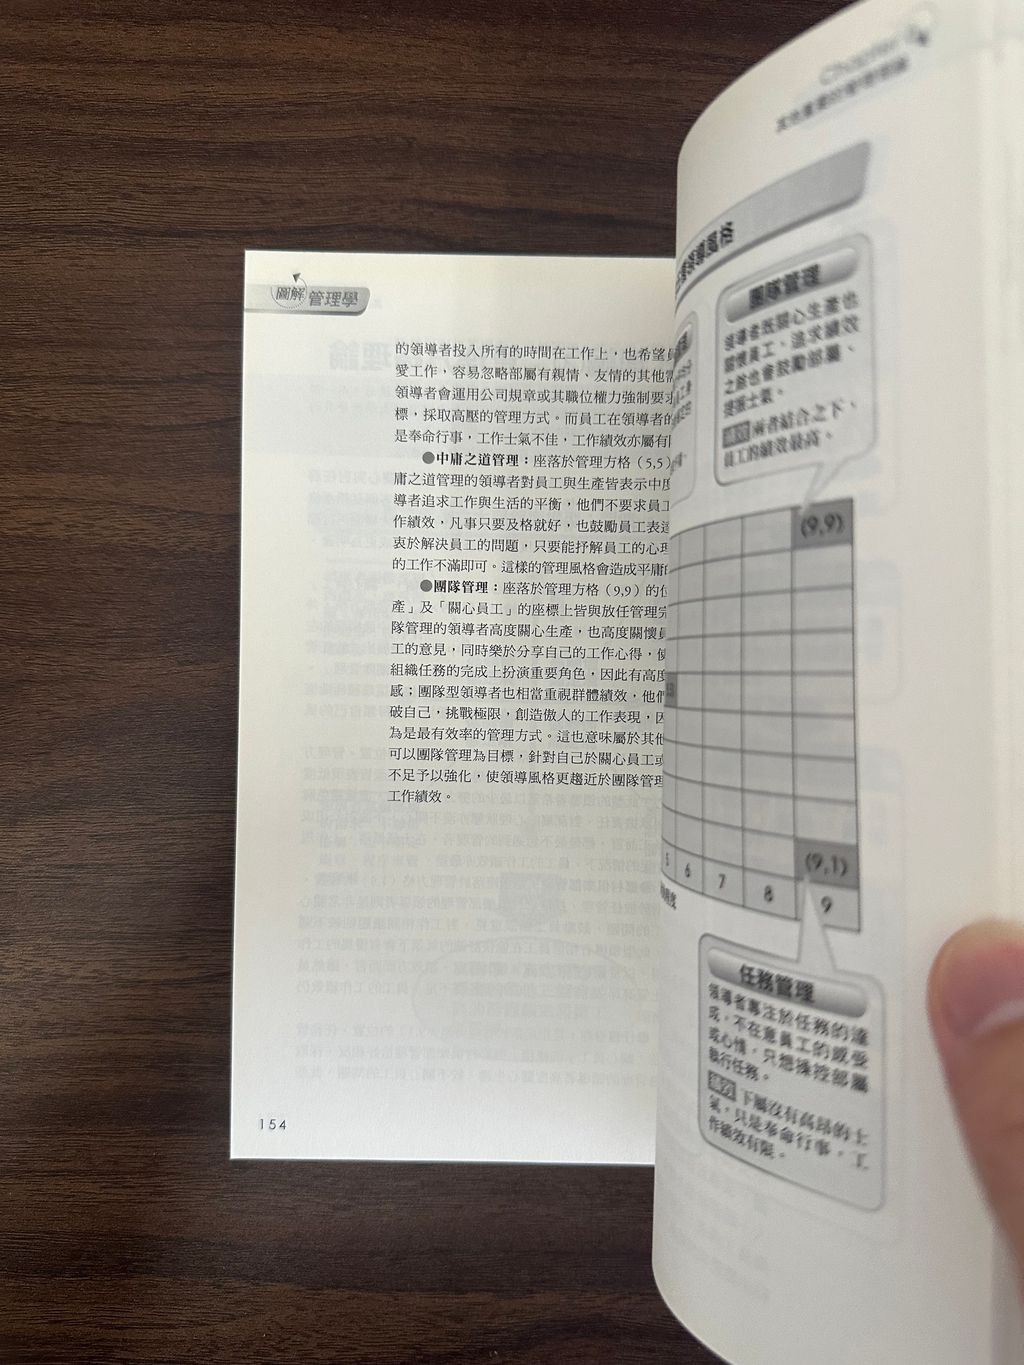 圖解 管理學
的領導者投入所有的時間在工作上，也希望員
愛工作，容易忽略部屬有親情、友情的其他需
領導者會運用公司規章或其職位權力強制要求
標，採取高壓的管理方式。而員工在領導者的
是奉命行事，工作士氣不佳，工作績效亦屬有
●中庸之道管理：座落於管理方格（5,5）
庸之道管理的領導者對員工與生產皆表示中度
導者追求工作與生活的平衡，他們不要求員工
作績效，凡事只要及格就好，也鼓勵員工表達
衷於解決員工的問題，只要能抒解員工的心理
的工作不滿即可。這樣的管理風格會造成平庸的
●團隊管理：座落於管理方格（9,9）的位
產」及「關心員工」的座標上皆與放任管理完
隊管理的領導者高度關心生產，也高度關懷員
工的意見，同時樂於分享自己的工作心得，使
組織任務的完成上扮演重要角色，因此有高度
感；團隊型領導者也相當重視群體績效，他們
破自己，挑戰極限，創造傲人的工作表現，因
為是最有效率的管理方式。這也意味屬於其他
可以團隊管理為目標，針對自己於關心員工或
不足予以強化，使領導風格更趨近於團隊管理
工作績效。
154
Chapter
領導風格
團隊管理
領導者既關心生產也
關懷員工、追求績效
之餘也會鼓勵部屬、
提振士氣。
績效 兩者結合之下、
員工的績效最高。
(9,9)
(9,1)
5 6 7 8 9
任務管理
領導者專注於任務的達
成，不在意員工的感受
或心情，只想操控部屬
執行任務。
績效 下屬沒有高昂的士
氣，只是奉命行事，工
作績效有限。